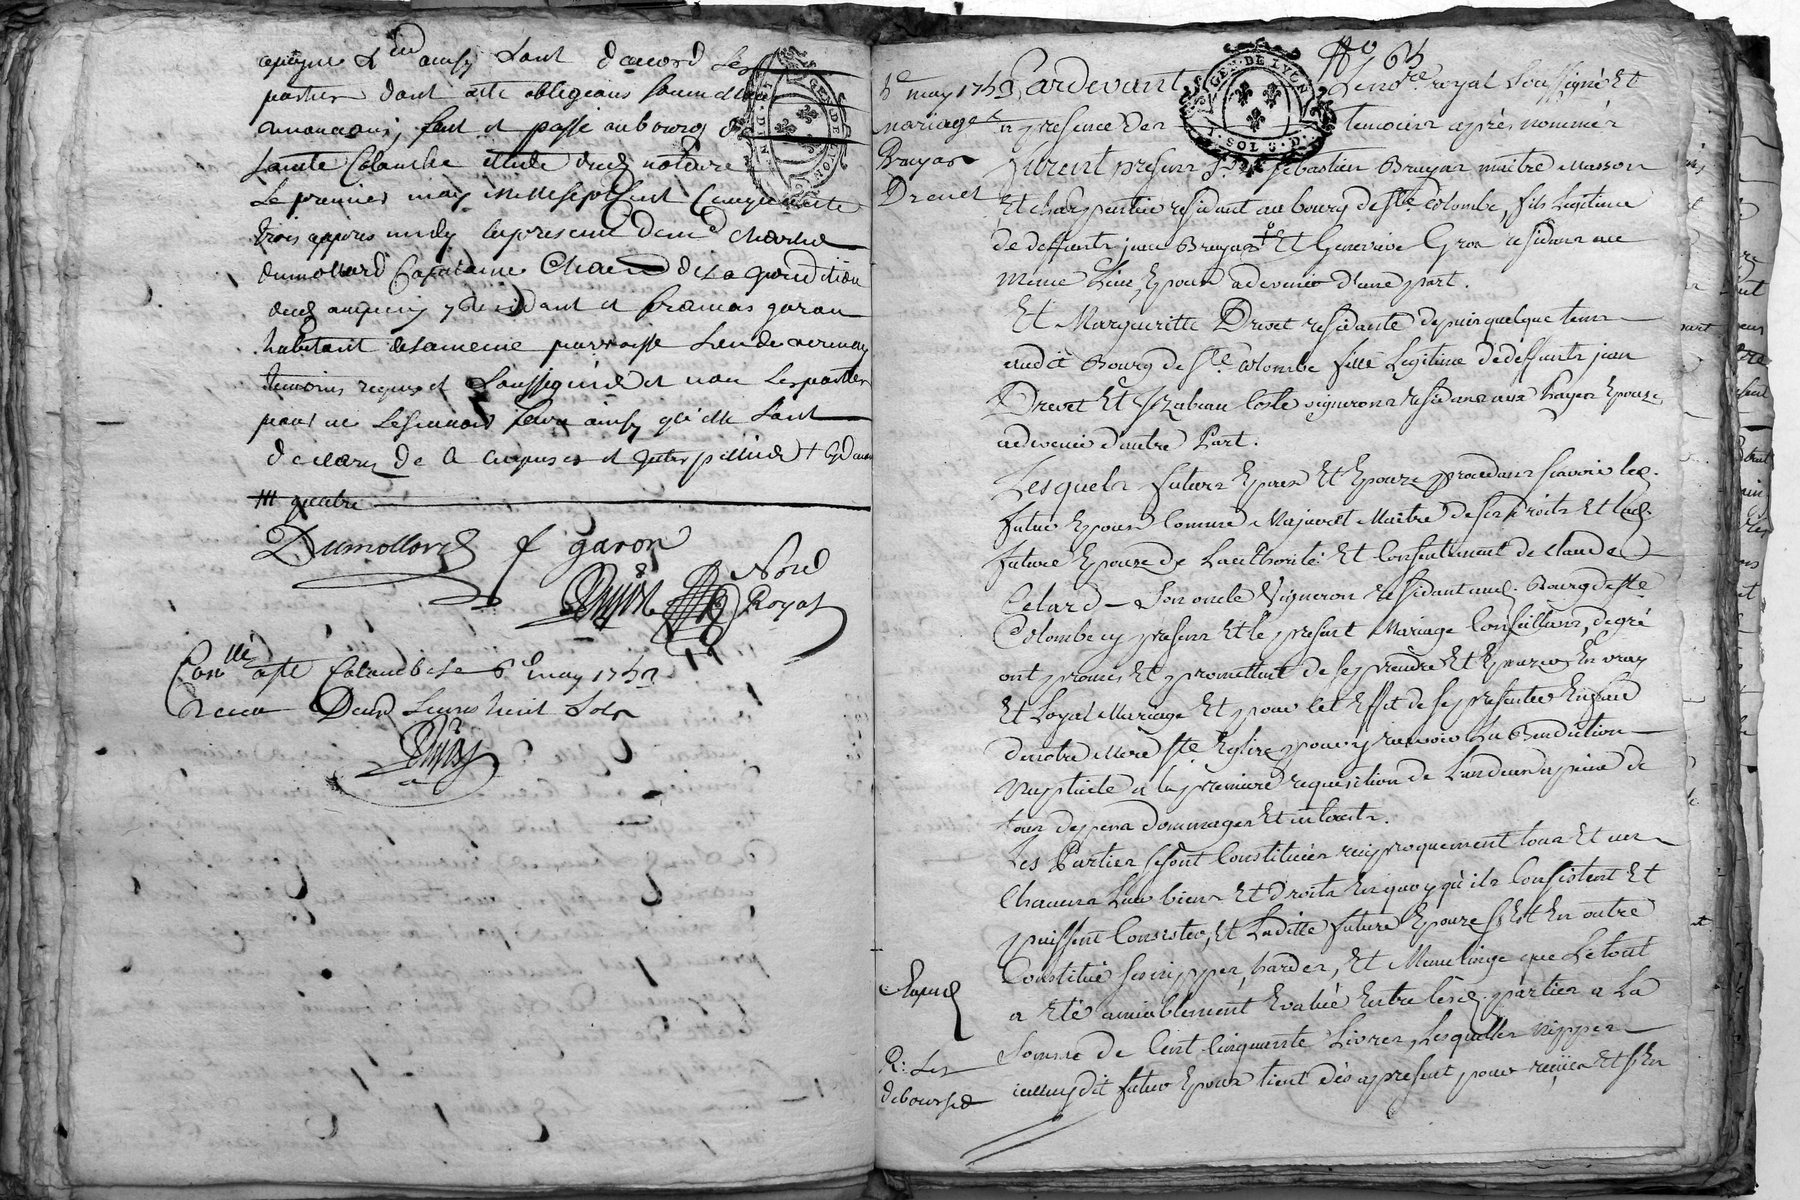 ainsy sont d'acord les
parties dont acte obligeans soumettans
renoncans, fait et passé au bourg de
sainte Colombe étude dud notaire
le premier may mille sept cent cinquante
trois appres midy en presence de
dumollard Capitaine de la
et francois garon
habitant de la meme parroisse
temoins requis et soussignés et non les parties
pour ne le sçavoir faire ainsy qu'elle sont
declaré de ce enquises et interpellées
III quatre
Dumollard f garon
Nore
Royal
Con.lle a Ste Colombe le 6e may 1753
Receu Deux Livres huit sols
GEN. DE LYON
No 65
GEN. DE LYON
SOLS. D.
may 1753
mariage
Bruyas
Drevet
Pardevant Le nore. royal soussigné Et
En presence des temoins après nommés
furent presens Sr. Sébastien Bruyas maitre Masson
Et charpentier residant au bourg de Ste. Colombe, fils Legitime
de deffunts jean Bruyas Et Genevieve Gros residans au
meme Lieu, Epoux advenir d'une part.
Et Margueritte Drevet residante depuis quelque tems
audit Bourg de Ste. Colombe fille Legitime de deffunts jean
Drevet Et Izabeau Coste vignerons residans aux hayes Epouse
advenir d'autre Part.
Lesquels futurs Epoux Et Epouze procedans sçavoir led.
futur Epoux Comme Majeur Et Maitre de ses droits Et lad.
future Epouze de Lauthorité Et Consentement de Claude
Celard Son oncle Vigneron residant aud. Bourg de Ste
Colombe cy present Et le present Mariage Conseillant, de gré
ont promis Et promettent de se prendre Et Epouzer En vray
Et Loyal Mariage Et pour cet Effet de se presenter En face
de notre Mere Ste Eglise pour y recevoir La Benediction
Nuptiale a la premiere requisition de L'un deux a peine de
tous depens dommages Et interets.
Les Parties se sont Constituées reciproquement tous Et uns
Chacuns Leurs biens Et droits En quoy qu'ils Consistent Et
puissent Consister, Et Laditte future Epouze s'Est En outre
Constitué ses nippes, hardes, Et Menu linge que Le tout
a Eté amiablement Evalué Entre lesd. parties a La
Somme de Cent Cinquante Livres, Lesquelles nippes
icelluy dit futur Epoux tient dès a present pour reçues Et s'En
R: Les
deboursés